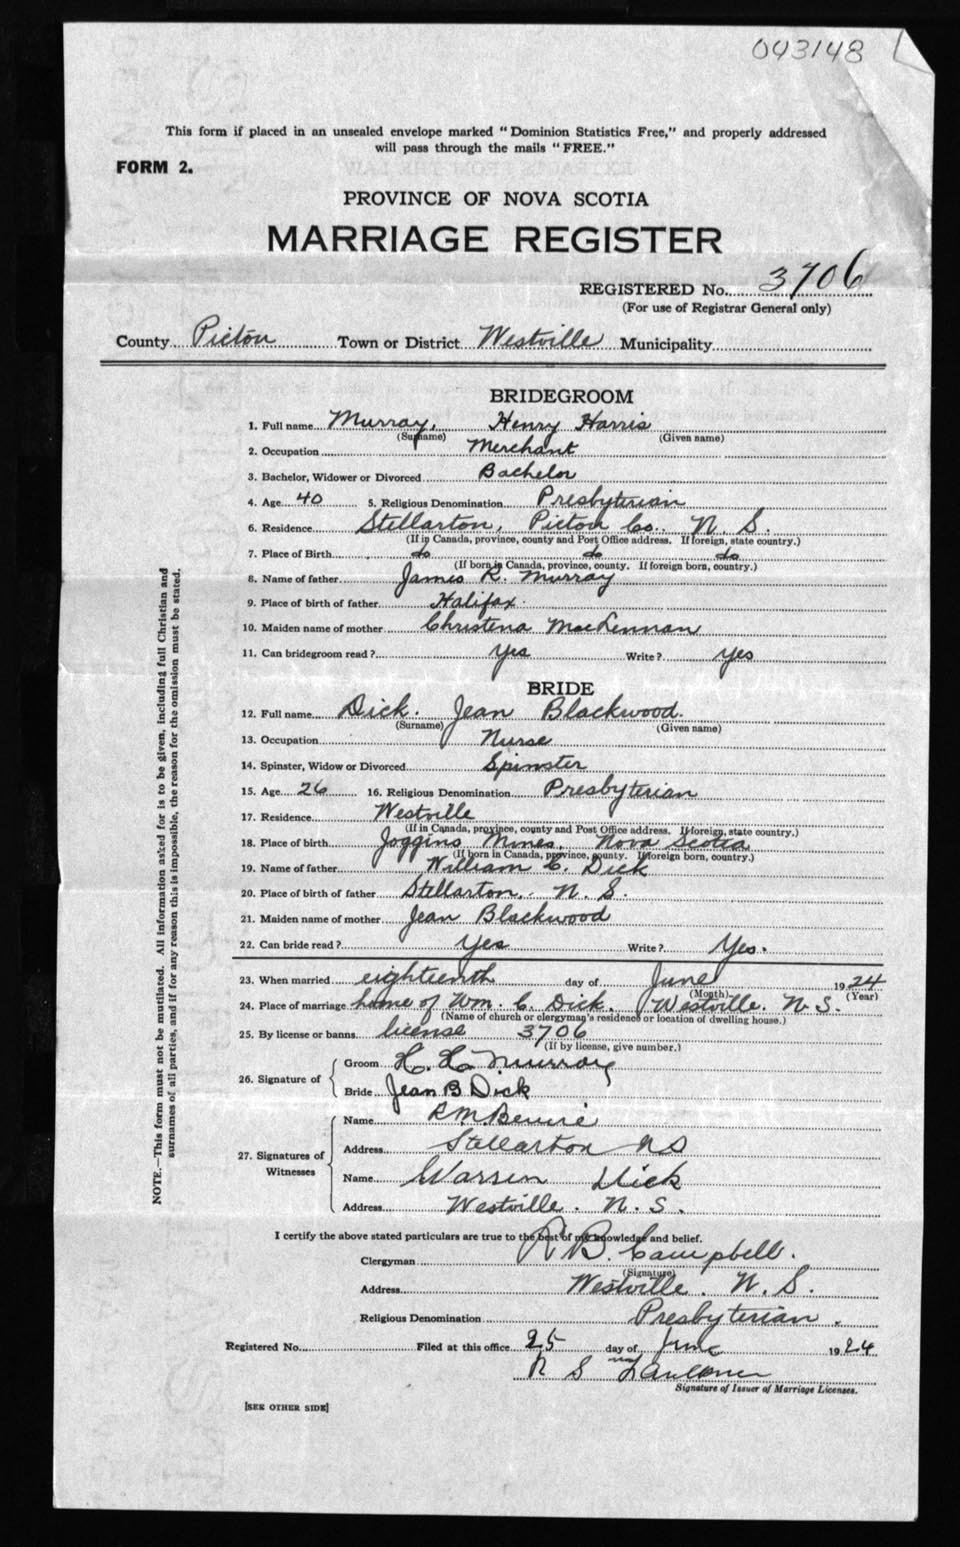 043148
This form if placed in an unsealed envelope marked "Dominion Statistics Free," and properly addressed
will pass through the mails "FREE."
FORM 2.
PROVINCE OF NOVA SCOTIA
MARRIAGE REGISTER
REGISTERED No. 3706
(For use of Registrar General only)
County Pictou Town or District Westville Municipality
BRIDEGROOM
1. Full name Murray, Henry Harris
(Surname) (Given name)
2. Occupation Merchant
3. Bachelor, Widower or Divorced Bachelor
4. Age 40 5. Religious Denomination Presbyterian
6. Residence Stellarton, Pictou Co., N. S.
(If in Canada, province, county and Post Office address. If foreign, state country.)
7. Place of Birth do do do
(If born in Canada, province, county. If foreign born, country.)
8. Name of father James R. Murray
9. Place of birth of father Halifax.
10. Maiden name of mother Christena MacLennan
11. Can bridegroom read? Yes Write? Yes
BRIDE
12. Full name Dick. Jean Blackwood.
(Surname) (Given name)
13. Occupation Nurse
14. Spinster, Widow or Divorced Spinster
15. Age 26 16. Religious Denomination Presbyterian
17. Residence Westville
(If in Canada, province, county and Post Office address. If foreign, state country.)
18. Place of birth Joggins Mines, Nova Scotia
(If born in Canada, province, county. If foreign born, country.)
19. Name of father William C. Dick
20. Place of birth of father Stellarton, N. S.
21. Maiden name of mother Jean Blackwood
22. Can bride read? Yes Write? Yes.
23. When married eighteenth day of June 1924
(Month) (Year)
24. Place of marriage home of Wm. C. Dick, Westville. N. S.
(Name of church or clergyman's residence or location of dwelling house.)
25. By license or banns license 3706
(If by license, give number.)
26. Signature of
Groom H. H. Murray
Bride Jean B Dick
27. Signatures of Witnesses
Name R M
Address Stellarton NS
Name Warren Dick
Address Westville. N. S.
I certify the above stated particulars are true to the best of my knowledge and belief.
Clergyman R B. Campbell.
(Signature)
Address Westville. N. S.
Religious Denomination Presbyterian.
Registered No. Filed at this office 25 day of June 1924
Signature of Issuer of Marriage Licenses.
[SEE OTHER SIDE]
NOTE.—This form must not be mutilated. All information asked for is to be given, including full Christian and
surnames of all parties, and if for any reason this is impossible, the reason for the omission must be stated.